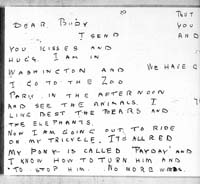 Dear Buddy
I send
you kisses and
hugs. I am in
Washington and
I go to the Zoo
Park in the afternoon
and see the animals. I
like best the bears and
the elephants.
Now I am going out to ride
on my tricycle. I told Red
my pony is called "Payday" and
I know how to turn him and
to stop him. No more words.
But
you
and
We have